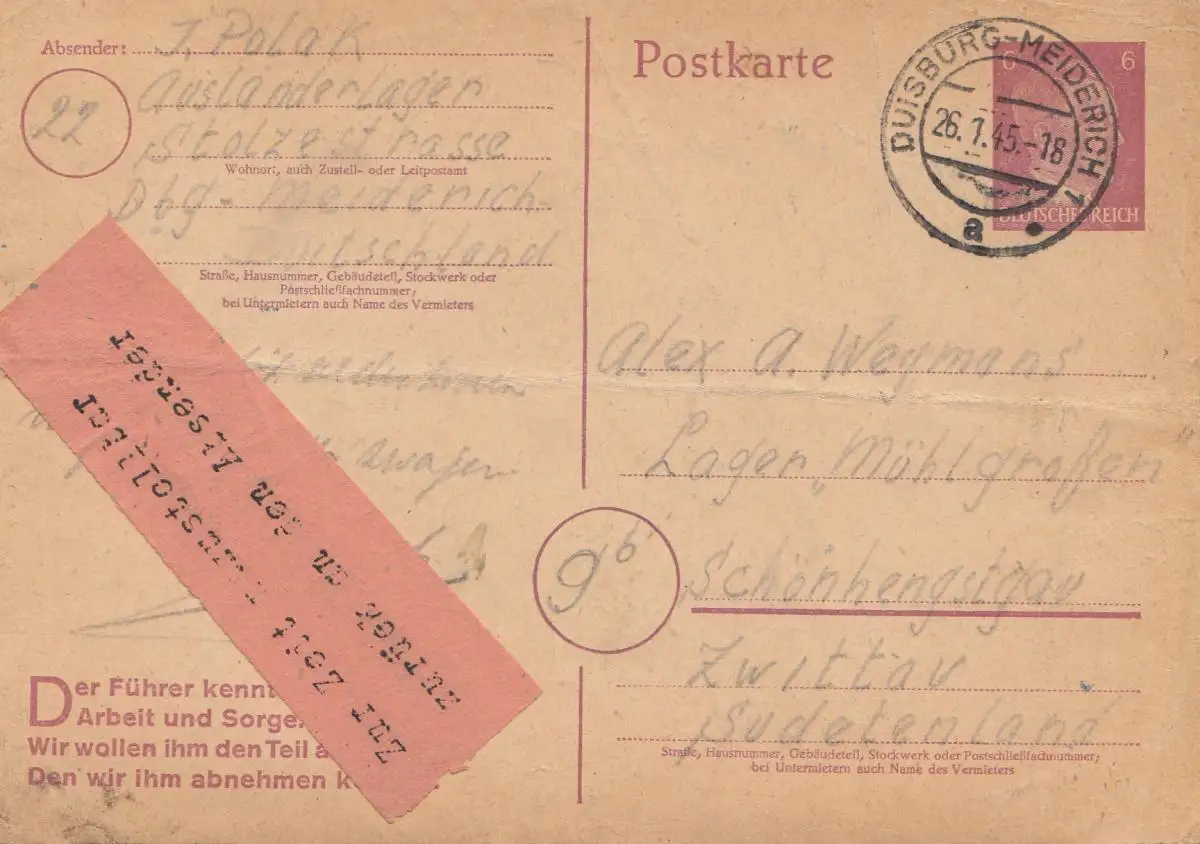 Absender: J. Polak
22
Ausländerlager
Stolzestrasse
Wohnort, auch Zustell- oder Leitpostamt
Dbg-Meiderich
Deutschland
Straße, Hausnummer, Gebäudeteil, Stockwerk oder
Postschließfachnummer;
bei Untermietern auch Name des Vermieters
Postkarte
DUISBURG-MEIDERICH 1
26.1.45.-18
a
6 6
DEUTSCHES REICH
Alex A. Weymans
Lager „Möhlgraßen
9b
Schönhengstgau
Zwittau
Sudetenland
Straße, Hausnummer, Gebäudeteil, Stockwerk oder Postschließfachnummer;
bei Untermietern auch Name des Vermieters
Zur Zeit unzustellbar
zurück an den Absender
Der Führer kennt
Arbeit und Sorge
Wir wollen ihm den Teil a
Den wir ihm abnehmen k